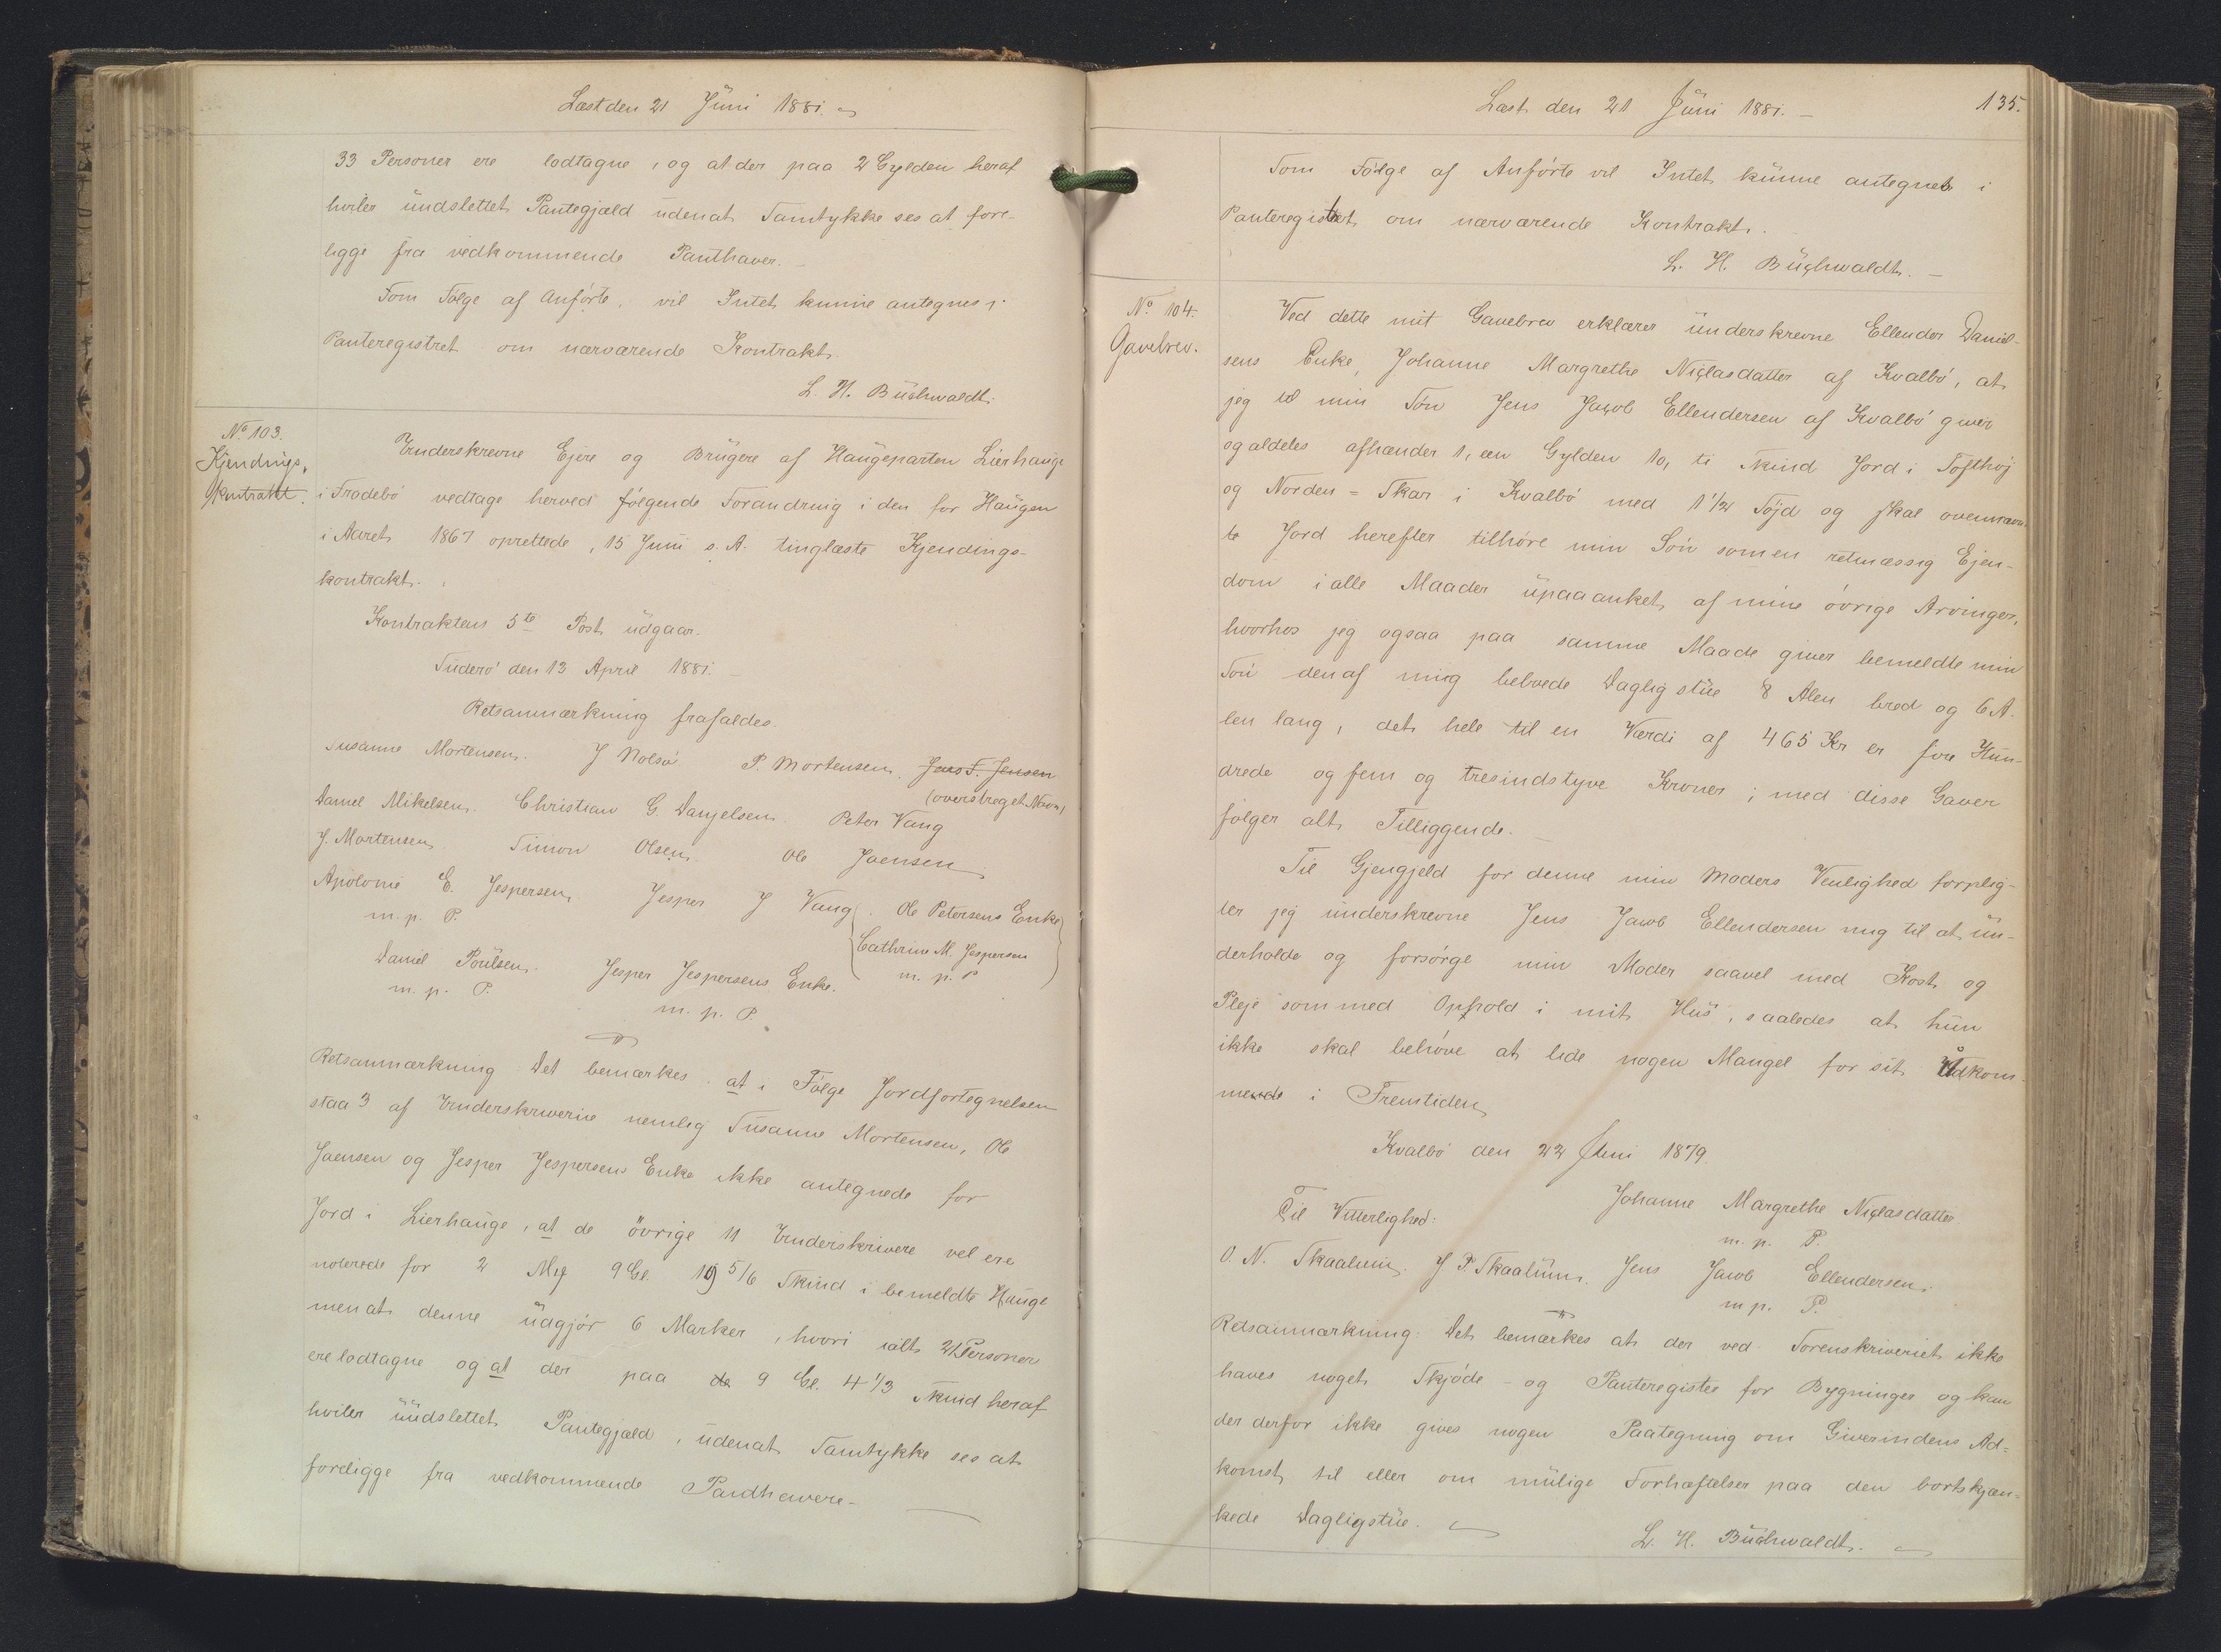 Læst den 21 Jŭni 1881.
33 Personer ere lodtagne, og at der paa 2 Gylden heraf
hviler ŭndslettet Pantegjæld ŭdenat Samtykke ses at fore-
ligge fra vedkommende Panthaver. –
Som Følge af Anførte, vil Intet kunne antegnes i
Panteregistret om nærværende Kontrakt.
L. H. Bŭchwaldt.
No 103.
Kjendings,
kontrakt.
Underskrevne Ejere og Brŭgere af Haŭgeparten Lierhauge
i Fradebø vedtage herved følgende Forandring i den for Haŭgen
i Aaret 1867 oprettede, 15 Juni s. A. tinglæste Kjendings-
kontrakt.
Kontraktens 5te Post ŭdgaar.
Sŭderø den 13 April 1881. –
Retsanmærkning frafaldes.
Susanne Mortensen. J Nolsø P. Mortensen. Jens F. Jensen
(overstreget Navn)
Daniel Mikelsen. Christian G. Danjelsen. Peter Vang
J. Mortensen Simon Olsen. Ole Joensen
Apolonie E. Jespersen. Jesper J Vang. Ole Petersens Enke
m. p. P. Cathrine M. Jespersen
Daniel Poŭlsen. Jesper Jespersens Enke. m. p. P
m. p. P. m. p. P.
Retsanmærkning Det bemærkes at i Følge Jordfortegnelsen
staa 3 af Underskriverne nemlig Sŭsanne Mortensen, Ole
Joensen og Jesper Jespersens Enke ikke antegnede for
Jord i Lierhaŭge, at de øvrige 11 Underskrivere vel ere
noterede for 2 Mk 9 Gl. 19 5/6 Skind i bemeldte Haŭge
men at denne ŭdgjør 6 Marker, hvori ialt 21 Personer
ere lodtagne og at der paa de 9 Gl. 4 1/3 Skind heraf
hviler ŭŭdslettet Pantegjæld, ŭdenat Samtykke ses at
foreligge fra vedkommende Panthavere. –
Læst den 21 Jŭni 1881. –
135.
Som Følge af Anførte vil Intet kŭnne antegnes i
Panteregistret om nærværende Kontrakt.
L. H. Bŭchwaldt. –
No 104.
Gavebrev.
Ved dette mit Gavebrev erklærer ŭnderskrevne Ellendor Daniel-
sens Enke, Johanne Margrethe Niclasdatter af Kvalbø, at
jeg til min Søn Jens Jacob Ellendersen af Kvalbø giver
og aldeles afhænder 1, een Gylden 10, ti Skind Jord i Tofthøj
og Norden = Skar i Kvalbø med 1 1/2 Tøjd og skal ovennævn-
te Jord herefter tilhøre min Søn som en retmæssig Ejen-
dom i alle Maader ŭpaaanket af mine øvrige Arvinger,
hvorhos jeg ogsaa paa samme Maade giver bemeldte min
Søn den af mig beboede Daglig stŭe 8 Alen bred og 6 A-
len lang, det hele til en Værdi af 465 Kr er fire Hŭn-
drede og fem og tresindstyve Kroner; med disse Gaver
følger alt Tilliggende. –
Til Gjengjeld for denne min Moders Venlighed forplig-
ter jeg ŭnderskrevne Jens Jacob Ellendersen mig til at ŭn-
derholde og forsørge min Moder saavel med Kost og
Pleje som med Ophold i mit Hŭs, saaledes at hŭn
ikke skal behøve at lide nogen Mangel for sit Udkom-
mende i Fremtiden
Kvalbø den 22 Juni 1879.
Johanne Margrethe Niclasdatter
Til Vitterlighed: m. p. P.
O. N. Skaalum. J. P. Skaalŭm. Jens Jacob Ellendersen.
m p. P.
Retsanmærkning: Det bemærkes at der ved Sorenskriveriet ikke
haves noget Skjøde - og Panteregister for Bygninger og kan
der derfor ikke gives nogen Paategning om Giverindens Ad=
komst til eller om mŭlige Forhæftelser paa den bortskjæn=
kede Dagligstŭe.
L. H. Bŭchwaldt.